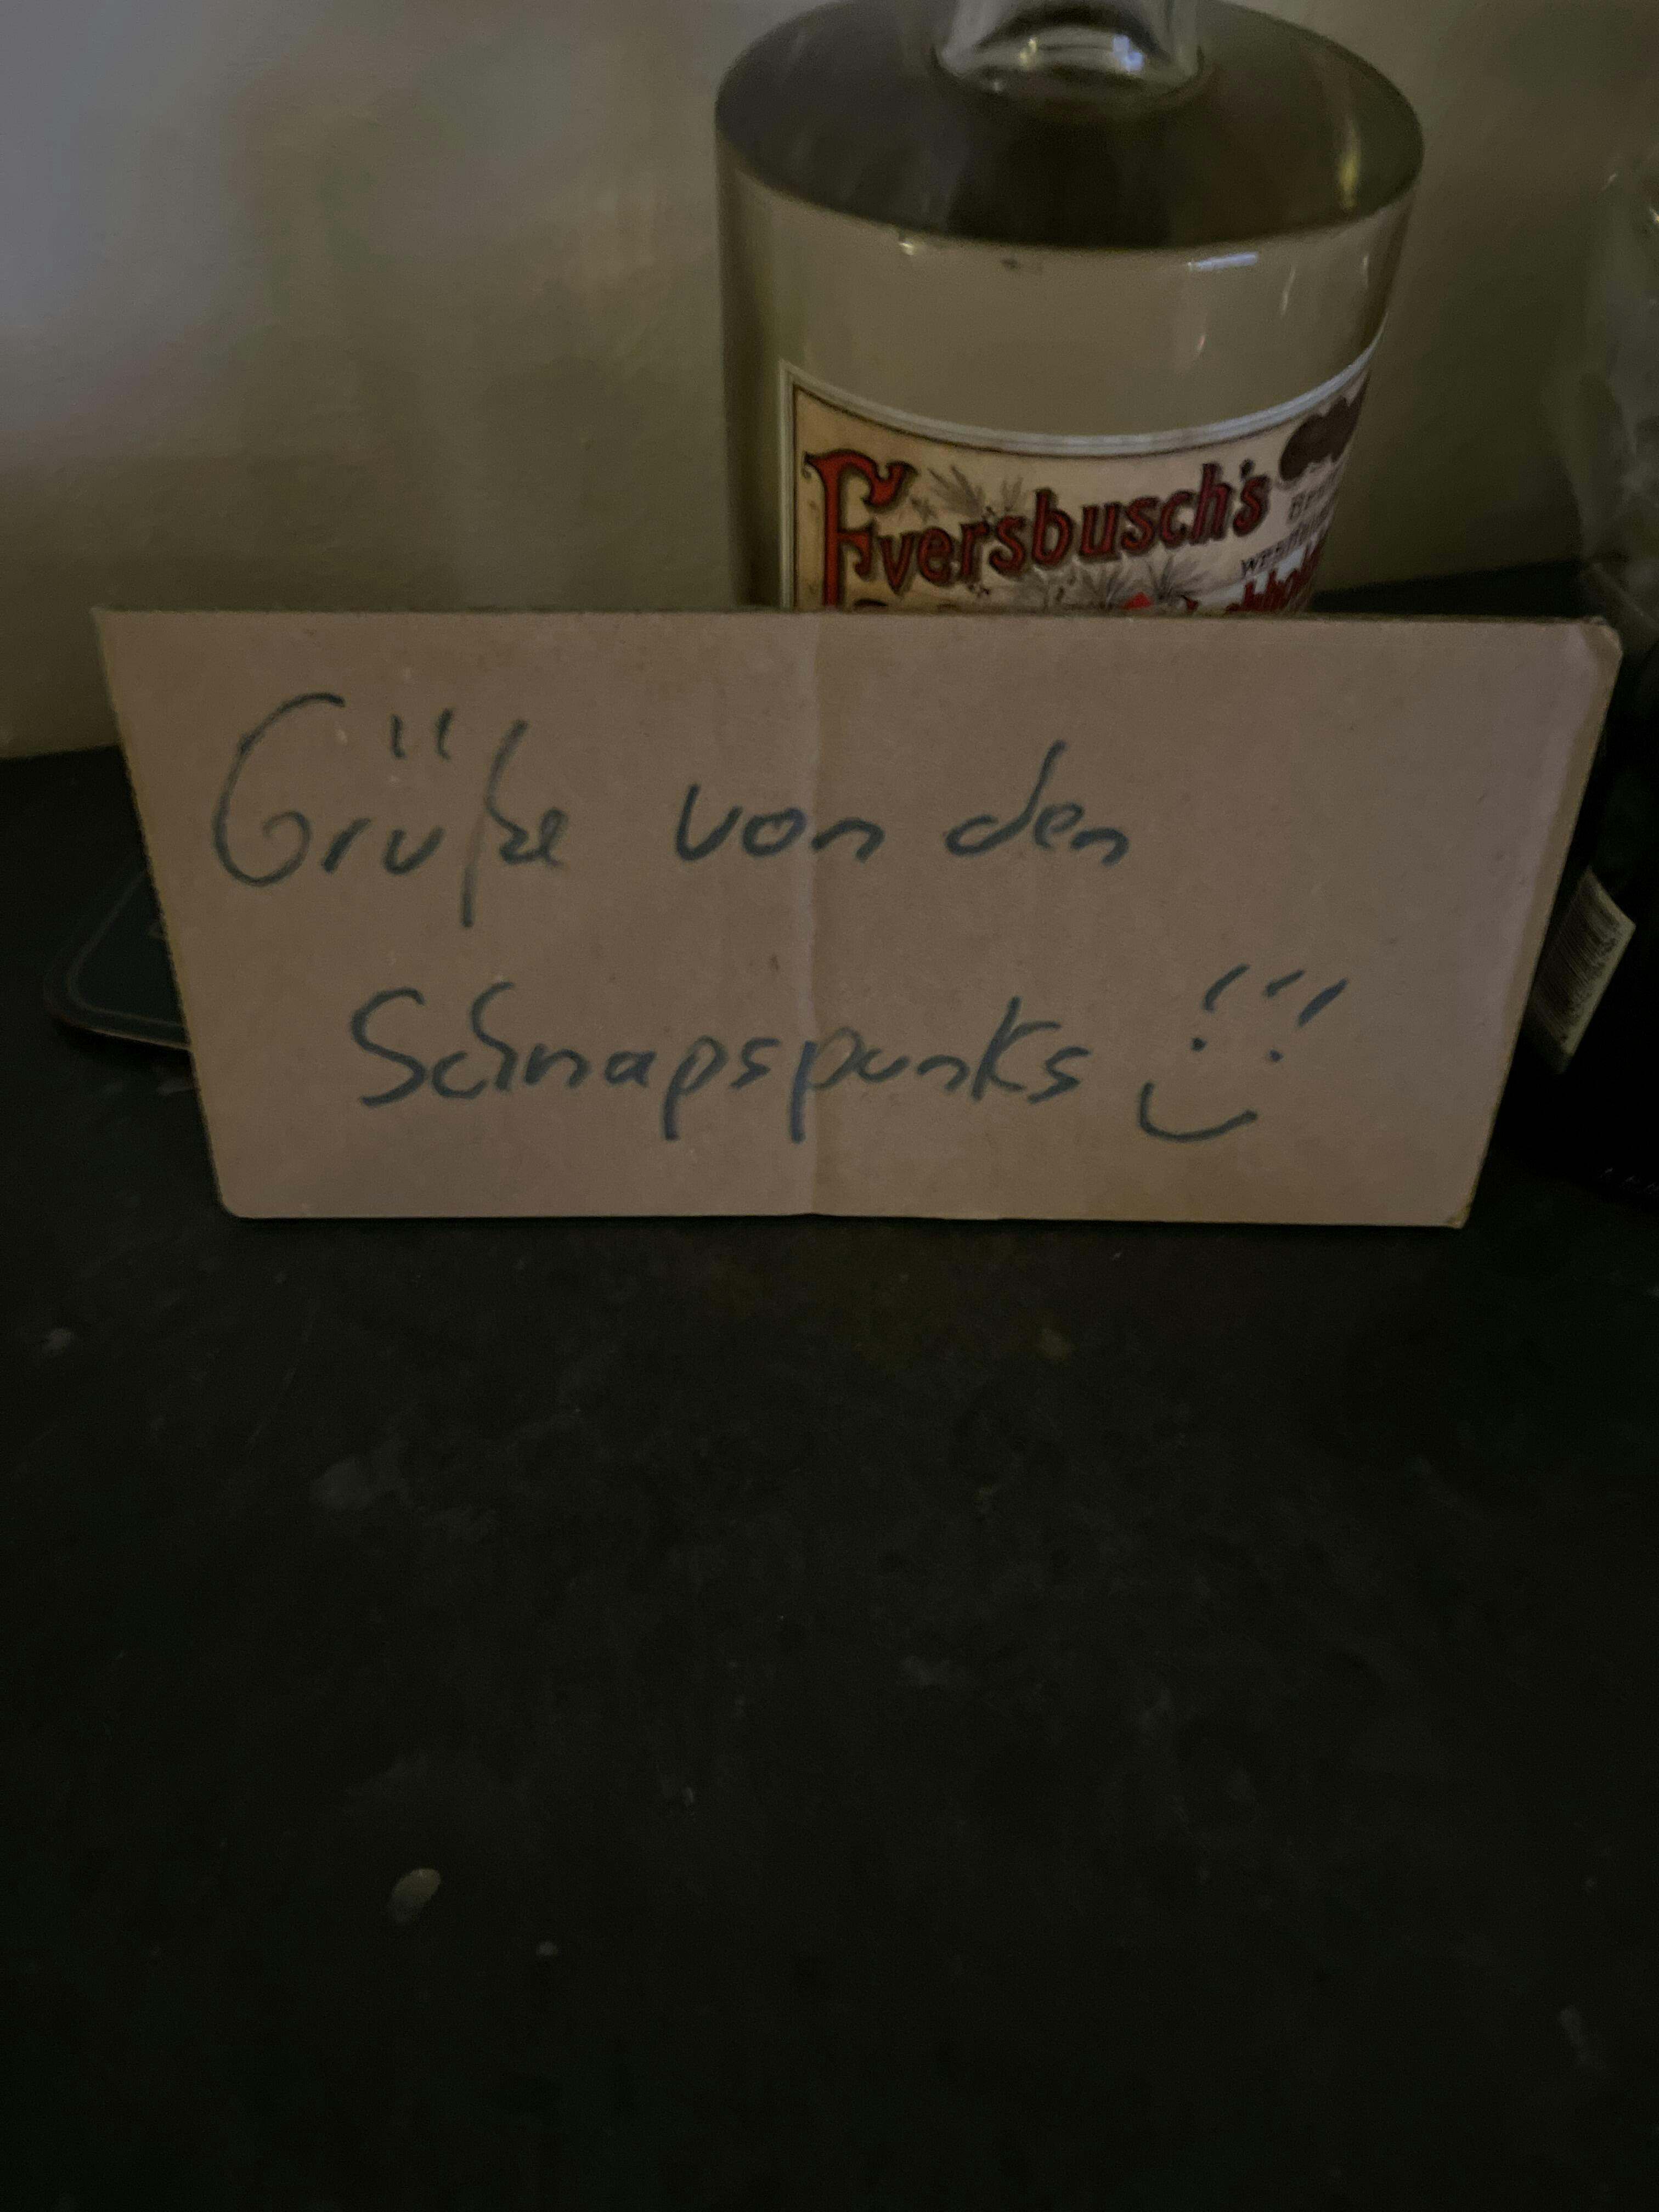 Eversbusch's
Grüße von den
Schnapspunks